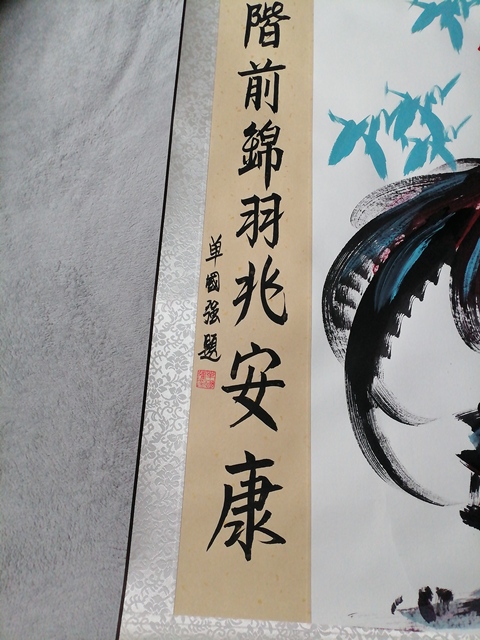 階前錦羽兆安康
单國强題